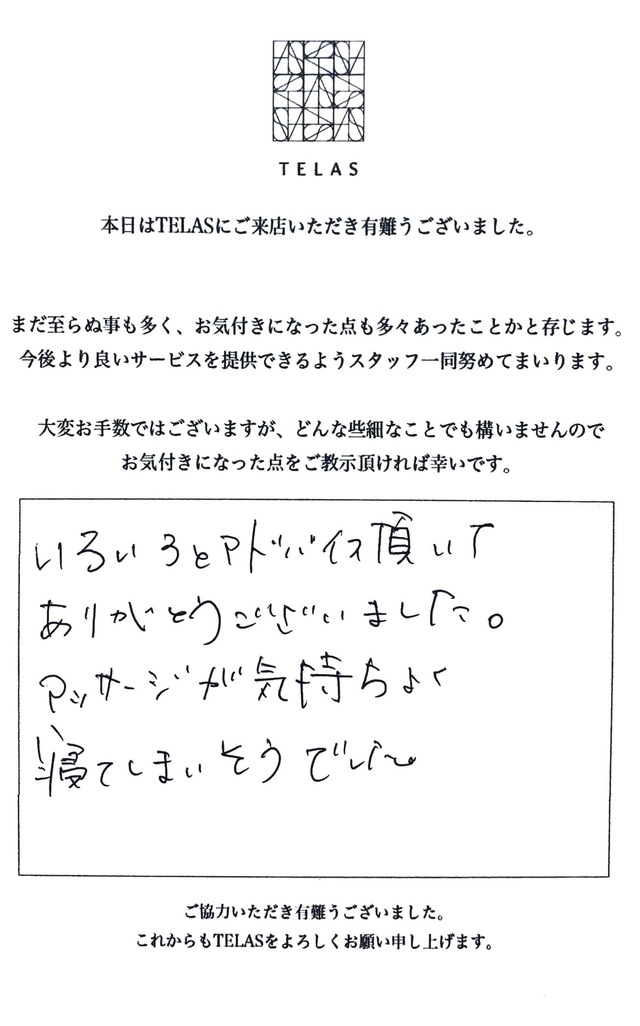 TELAS
本日はTELASにご来店いただき有難うございました。
まだ至らぬ事も多く、お気付きになった点も多々あったことかと存じます。
今後より良いサービスを提供できるようスタッフ一同努めてまいります。
大変お手数ではございますが、どんな些細なことでも構いませんので
お気付きになった点をご教示頂ければ幸いです。
いろいろとアドバイス頂いて
ありがとうございました。
マッサージが気持ちよく
寝てしまいそうでした〜
ご協力いただき有難うございました。
これからもTELASをよろしくお願い申し上げます。